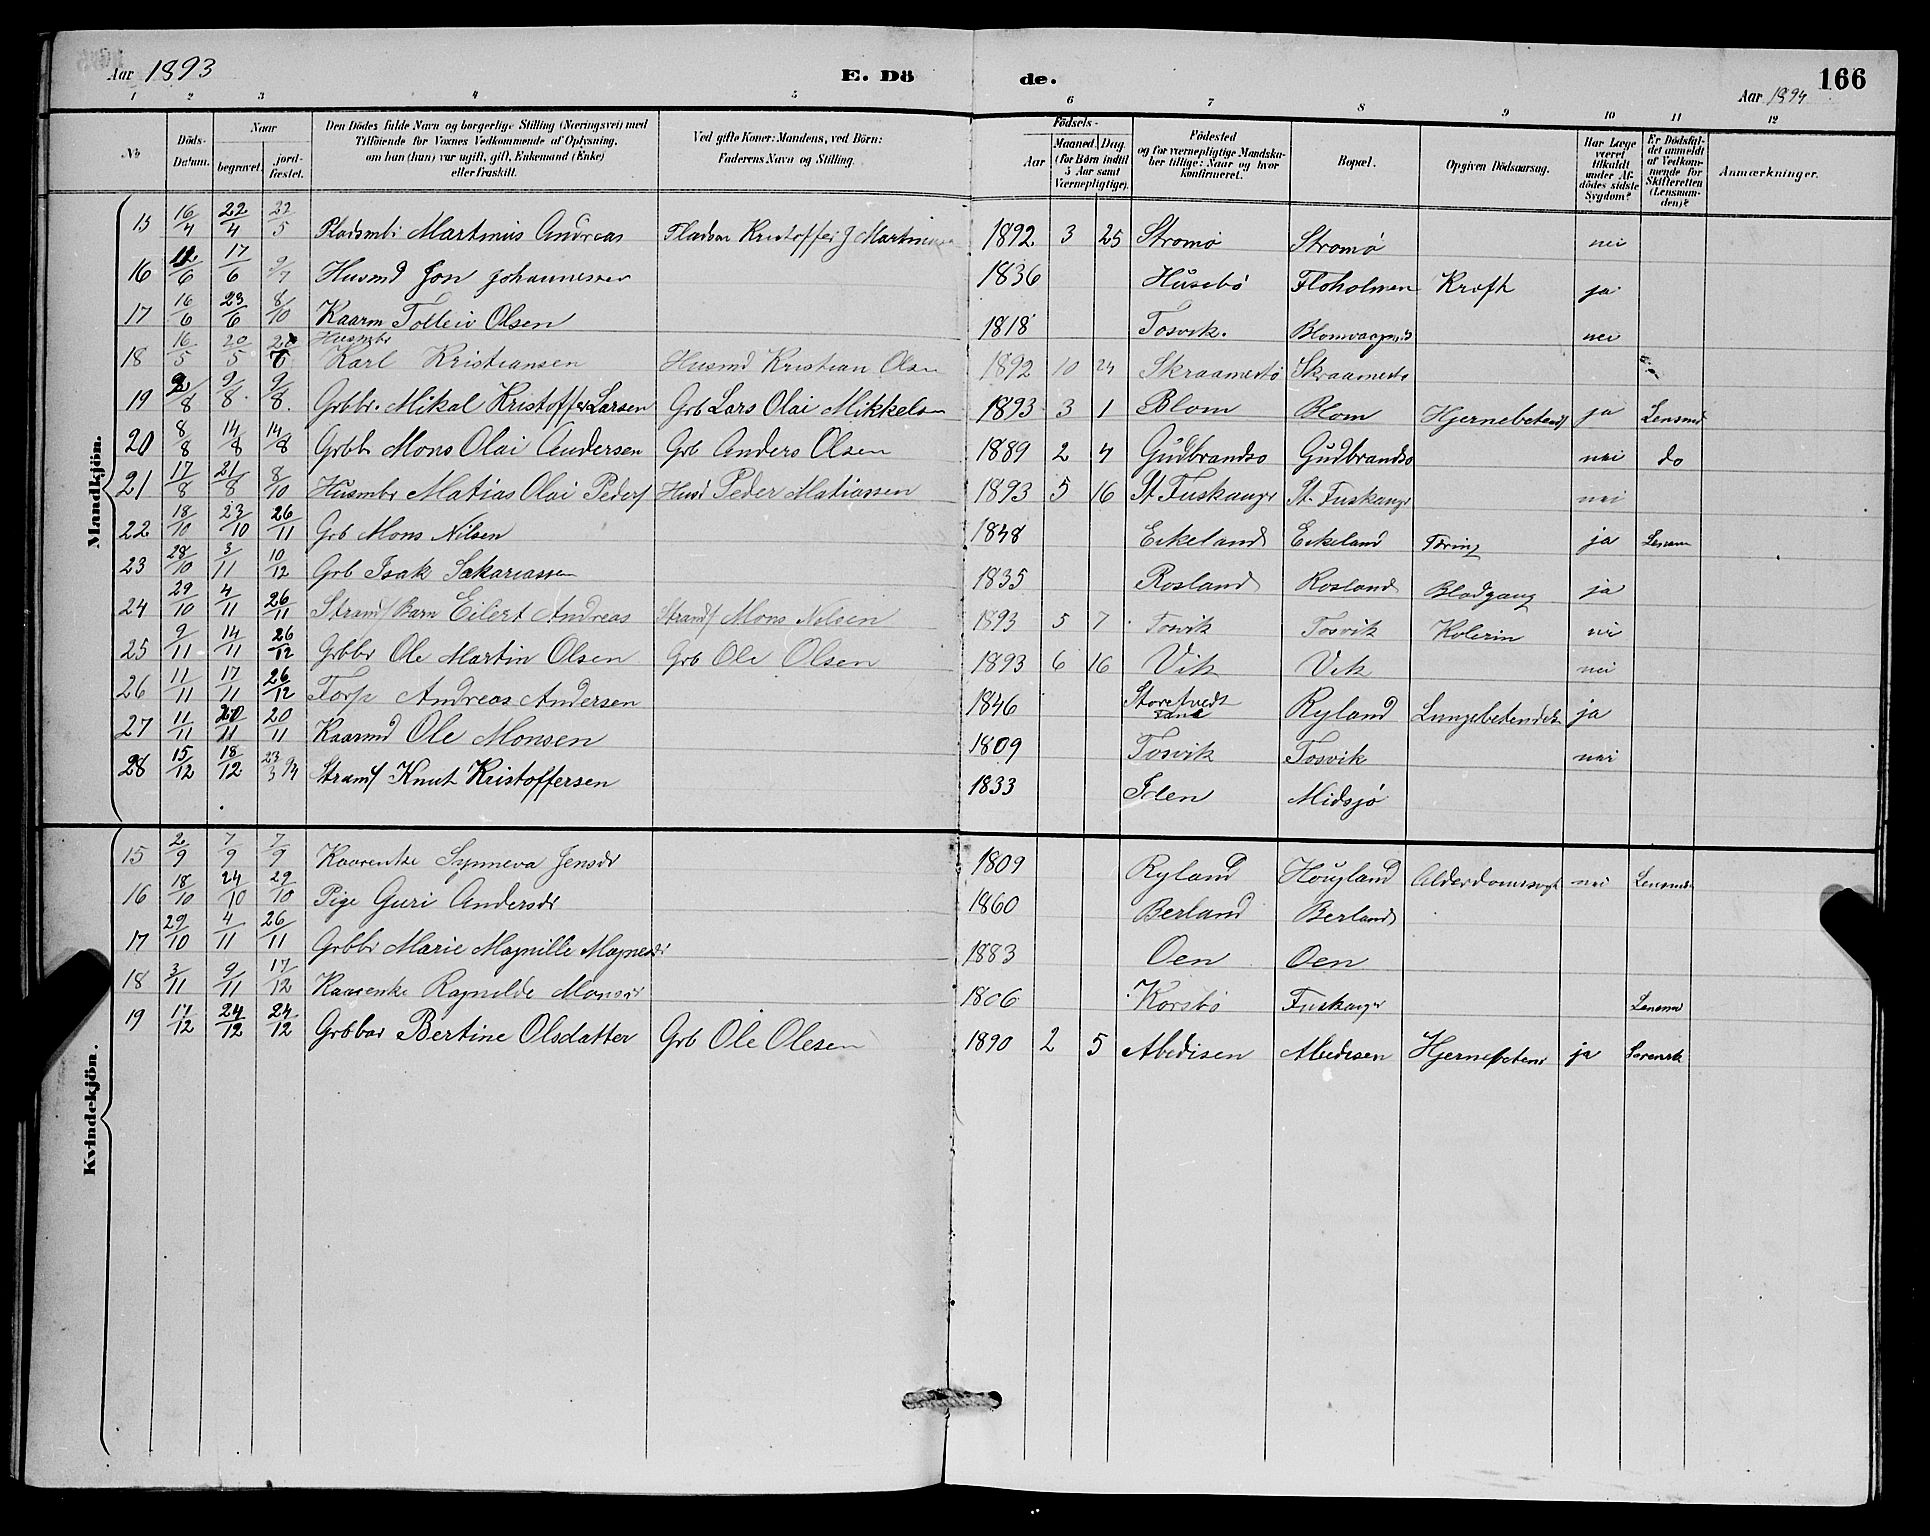 Aar 1893
E. Dö
de.
166
Aar 1894
1 2 3 4 5 6 7 8 9 10 11 12
No
Döds-Datum.
Naar
begravet.
jordfæstet.
Den Dödes fulde Navn og borgerlige Stilling (Næringsvei) med Tilföiende for Voxnes Vedkommende af Oplysning, om han (hun) var ugift, gift, Enkemand (Enke) eller fraskilt.
Ved gifte Koner: Mandens, ved Börn: Faderens Navn og Stilling.
Födsels-
Aar
Maaned. Dag. (for Börn indtil 5 Aar samt Værnepligtige).
Födested og for værnepligtige Mandskaber tillige: Naar og hvor konfirmeret.
Bopæl.
Opgiven Dödsaarsag.
Har Læge været tilkaldt under Afdödes sidste Sygdom?
Er Dödsfaldet anmeldt af Vedkommende for Skifteretten (Lensmanden)?
Anmærkninger.
Mandkjön.
15 16/4 22/4 22/5 Pladsmbr Martinus Andreas Pladsm Kristoffer J Martin 1892 3 25 Stromø Stromø nei
16 12/6 17/6 9/7 Husmd Jon Johannessen 1836 Husebø Floholmen Kræft ja
17 16/6 23/6 8/10 Kaarm Tolleiv Olsen 1818 Tosvik. Blomvaagnes nei
18 16/5 20/5 Husmbr Karl Kristiansen Husmd Kristian Olsen 1892 10 24 Skraamestø Skraamestø
19 2/8 9/8. 9/8. Grbbr. Mikal Kristoffer Larsen Grb Lars Olai Mikkelsen 1893 3 1 Blom Blom Hjernebetænd ja Lensmd
20 8/8 14/8 14/8 Grbb Mons Olai Andersen Grb Anders Olsen 1889 2 4 Gudbrandsø Gudbrandsø nei do
21 17/8 21/8 8/10 Husmbr Matias Olai Peders Husd Peder Matiassen 1893 5 16 St Fuskanger St. Fuskanger nei
22 18/10 23/10 26/11 Grb Mons Nilsen 1848 Eikeland Eikeland Tæring ja Lensm
23 28/10 3/11 10/12 Grb Isak Sakariassen 1835 Rosland Rosland Blodgang ja
24 29/10 4/11 26/11 Strands Barn Eilert Andreas Strands Mons Nilsen 1893 5 7 Tosvik Tosvik Kolerin nei
25 9/11 14/11 26/12 Grbbr Ole Martin Olsen Grb Ole Olsen 1893 6 16 Vik Vik nei
26 11/11 17/11 26/12 Torp Andreas Andersen 1846 Storetvedt Ryland Lungebetendels ja
27 11/11 20/11 20/11 Kaarmd Ole Monsen 1809 Tosvik Tosvik nei
28 15/12 18/12 23/3 94 Strands Knut Kristoffersen 1833 Iden Midsjø
Kvindekjön.
15 2/9 7/9 7/9 Kaarenke Synneva Jensdr 1809 Ryland Hougland Alderdomssvagh nei Lensmd
16 18/10 24/10 29/10 Pige Guri Andersdr 1860 Berland Berland
17 29/10 4/11 26/11 Grbbr Marie Magnille Magnesdr 1883 Oen Oen
18 3/11 9/11 17/12 Kaarenke Ragnilde Monsdr 1806 Korsbø Fuskanger Lensmd
19 17/12 24/12 24/12 Grbbar Bertine Olsdatter Grb Ole Olesen 1890 2 5 Abedisen Abedisen Hjernebetens ja